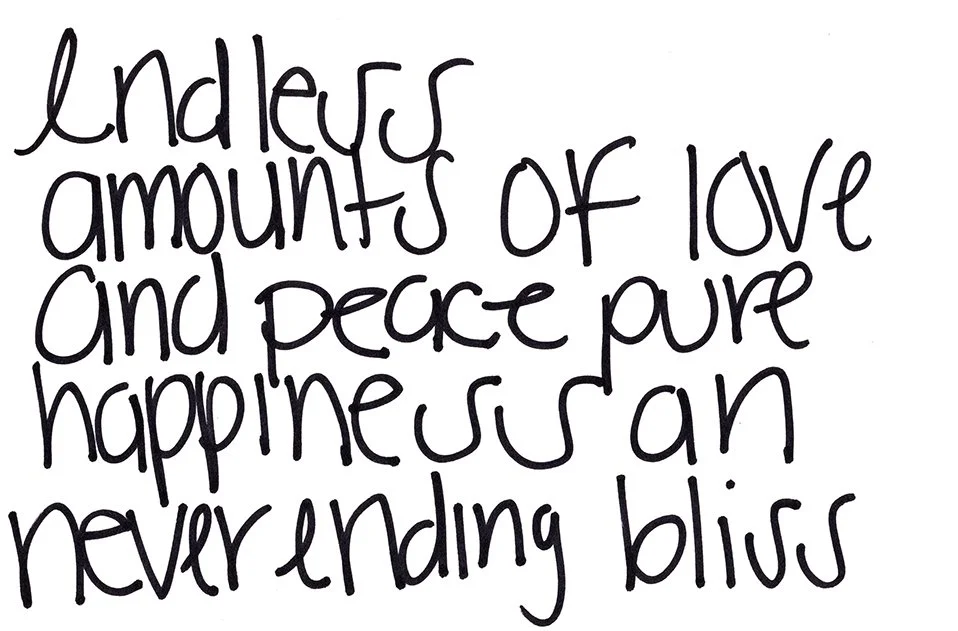 endless
amounts of love
and peace pure
happiness an
never ending bliss